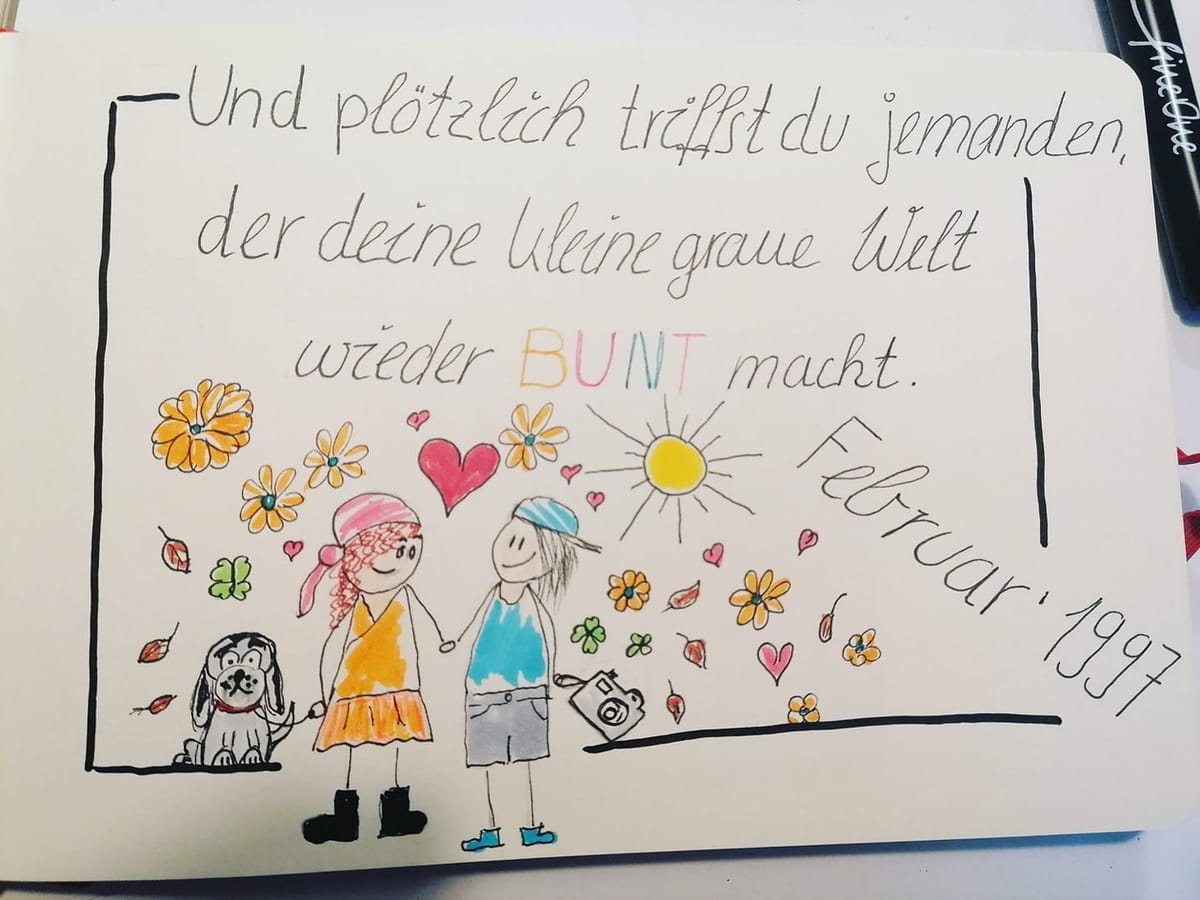 Und plötzlich triffst du jemanden,
der deine kleine graue Welt
wieder BUNT macht.
Februar 1997
fineOne